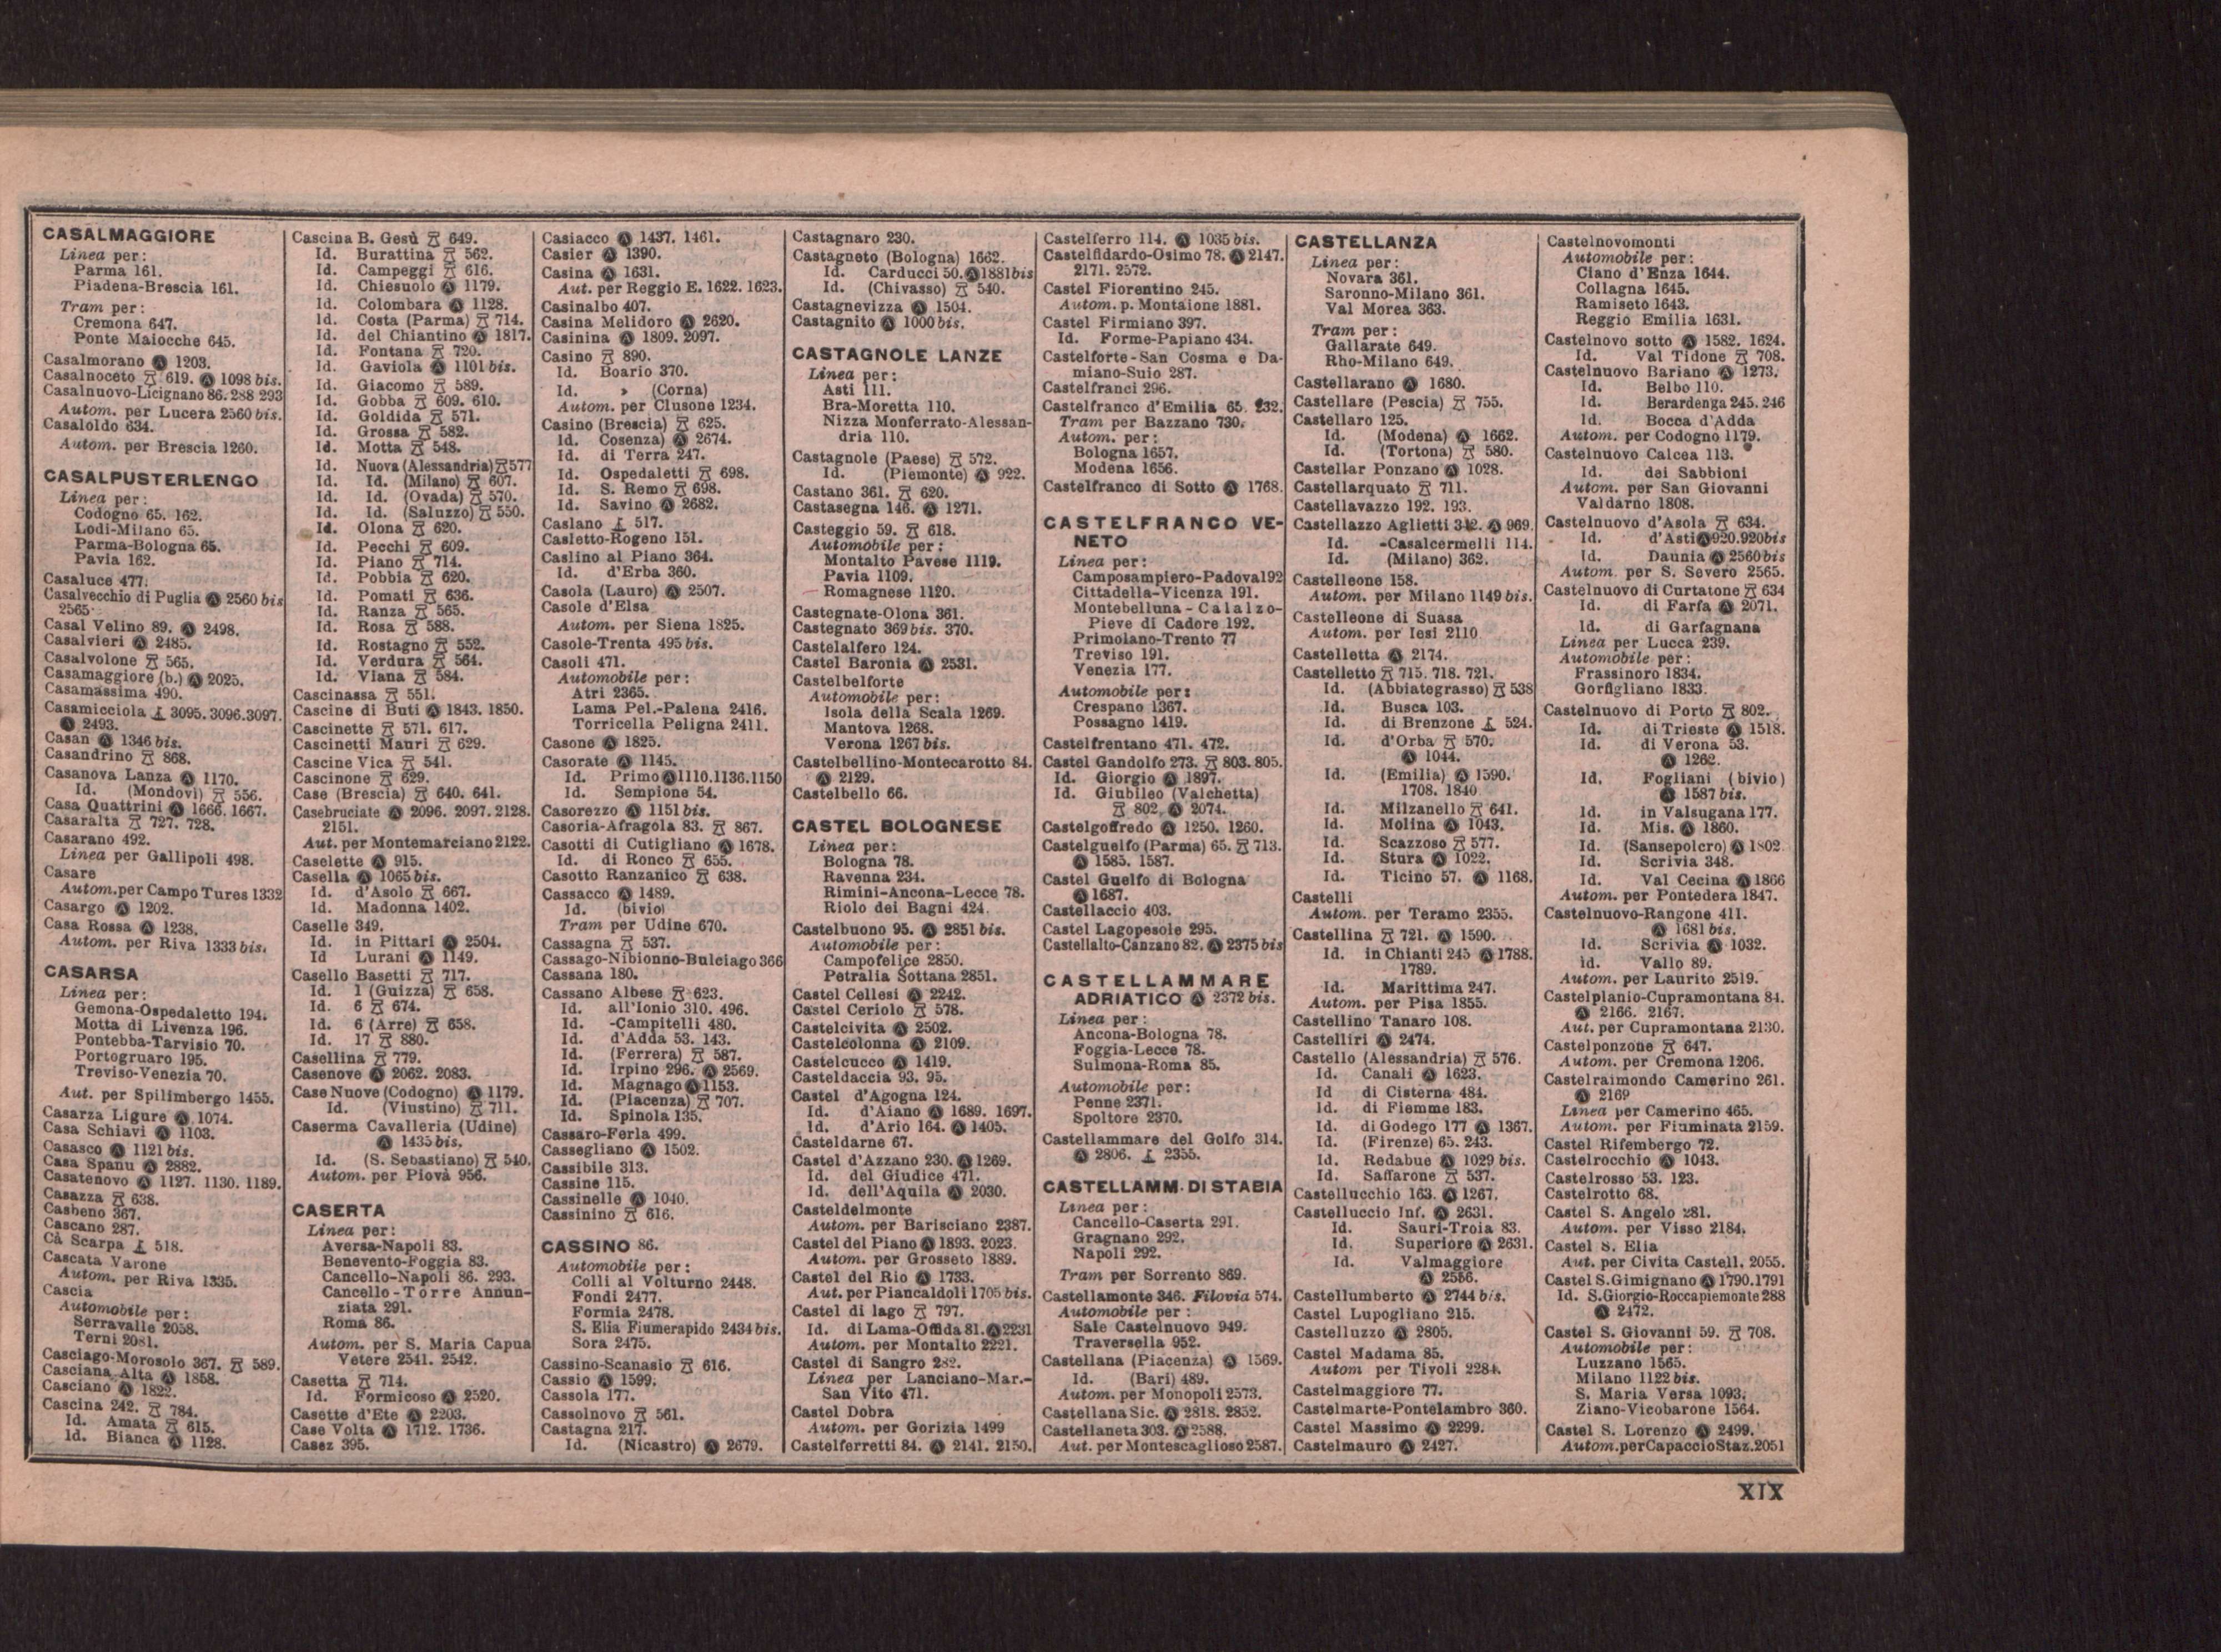 CASALMAGGIORE
Linea per:
Parma 161.
Piadena-Brescia 161.
Tram per:
Cremona 647.
Ponte Maiocche 645.
Casalmorano Ⓐ 1203.
Casalnoceto 619. Ⓐ 1098 bis.
Casalnuovo-Licignano 86. 288 293
Autom. per Lucera 2560 bis.
Casaloldo 634.
Autom. per Brescia 1260.
CASALPUSTERLENGO
Linea per:
Codogno 65. 162.
Lodi-Milano 65.
Parma-Bologna 65.
Pavia 162.
Casaluce 477.
Casalvecchio di Puglia Ⓐ 2560 bis
2565
Casal Velino 89. Ⓐ 2498.
Casalvieri Ⓐ 2485.
Casalvolone 565.
Casamaggiore (b.) Ⓐ 2025.
Casamassima 490.
Casamicciola 3095. 3096. 3097.
Ⓐ 2493.
Casan Ⓐ 1346 bis.
Casandrino 868.
Casanova Lanza Ⓐ 1170.
Id. (Mondovì) 556.
Casa Quattrini Ⓐ 1666. 1667.
Casaralta 727. 728.
Casarano 492.
Linea per Gallipoli 498.
Casare
Autom. per Campo Tures 1332
Casargo Ⓐ 1202.
Casa Rossa Ⓐ 1238.
Autom. per Riva 1333 bis.
CASARSA
Linea per:
Gemona-Ospedaletto 194.
Motta di Livenza 196.
Pontebba-Tarvisio 70.
Portogruaro 195.
Treviso-Venezia 70.
Aut. per Spilimbergo 1455.
Casarza Ligure Ⓐ 1074.
Casa Schiavi Ⓐ 1103.
Casasco Ⓐ 1121 bis.
Casa Spanu Ⓐ 2882.
Casatenovo Ⓐ 1127. 1130. 1189.
Casazza 638.
Casbeno 367.
Cascano 287.
Cà Scarpa 518.
Cascata Varone
Autom. per Riva 1335.
Cascia
Automobile per:
Serravalle 2058.
Terni 2081.
Casciago-Morosolo 367. 589.
Casciana Alta Ⓐ 1858.
Casciano Ⓐ 1822.
Cascina 242. 784.
Id. Amata 615.
Id. Bianca Ⓐ 1128.
Cascina B. Gesù 649.
Id. Burattina 562.
Id. Campeggi 616.
Id. Chiesuolo Ⓐ 1179.
Id. Colombara Ⓐ 1128.
Id. Costa (Parma) 714.
Id. del Chiantino Ⓐ 1817.
Id. Fontana 720.
Id. Gaviola Ⓐ 1101 bis.
Id. Giacomo 589.
Id. Gobba 609. 610.
Id. Goldida 571.
Id. Grossa 582.
Id. Motta 548.
Id. Nuova (Alessandria) 577
Id. Id. (Milano) 607.
Id. Id. (Ovada) 570.
Id. Id. (Saluzzo) 550.
Id. Olona 620.
Id. Pecchi 609.
Id. Piano 714.
Id. Pobbia 620.
Id. Pomati 636.
Id. Ranza 565.
Id. Rosa 588.
Id. Rostagno 552.
Id. Verdura 564.
Id. Viana 584.
Cascinassa 551.
Cascine di Buti Ⓐ 1843. 1850.
Cascinette 571. 617.
Cascinetti Mauri 629.
Cascine Vica 541.
Cascinone 629.
Case (Brescia) 640. 641.
Casebruciate Ⓐ 2096. 2097. 2128.
2151.
Aut. per Montemarciano 2122.
Caselette Ⓐ 915.
Casella Ⓐ 1065 bis.
Id. d'Asolo 667.
Id. Madonna 1402.
Caselle 349.
Id. in Pittari Ⓐ 2504.
Id Lurani Ⓐ 1149.
Casello Basetti 717.
Id. 1 (Guizza) 658.
Id. 6 674.
Id. 6 (Arre) 658.
Id. 17 880.
Casellina 779.
Casenove Ⓐ 2062. 2083.
Case Nuove (Codogno) Ⓐ 1179.
Id. (Viustino) 711.
Caserma Cavalleria (Udine)
Ⓐ 1435 bis.
Id. (S. Sebastiano) 540.
Autom. per Piovà 956.
CASERTA
Linea per:
Aversa-Napoli 83.
Benevento-Foggia 83.
Cancello-Napoli 86. 293.
Cancello-Torre Annun-
ziata 291.
Roma 86.
Autom. per S. Maria Capua
Vetere 2541. 2542.
Casetta 714.
Id. Formicoso Ⓐ 2520.
Casette d'Ete Ⓐ 2203.
Case Volta Ⓐ 1712. 1736.
Casez 395.
Casiacco Ⓐ 1437. 1461.
Casier Ⓐ 1390.
Casina Ⓐ 1631.
Aut. per Reggio E. 1622. 1623.
Casinalbo 407.
Casina Melidoro Ⓐ 2620.
Casinina Ⓐ 1809. 2097.
Casino 890.
Id. Boario 370.
Id. » (Corna)
Autom. per Clusone 1234.
Casino (Brescia) 625.
Id. Cosenza) Ⓐ 2674.
Id. di Terra 247.
Id. Ospedaletti 698.
Id. S. Remo 698.
Id. Savino Ⓐ 2682.
Caslano 517.
Casletto-Rogeno 151.
Caslino al Piano 364.
Id. d'Erba 360.
Casola (Lauro) Ⓐ 2507.
Casole d'Elsa
Autom. per Siena 1825.
Casole-Trenta 495 bis.
Casoli 471.
Automobile per:
Atri 2365.
Lama Pel.-Palena 2416.
Torricella Peligna 2411.
Casone Ⓐ 1825.
Casorate Ⓐ 1145.
Id. Primo Ⓐ 1110.1136.1150
Id. Sempione 54.
Casorezzo Ⓐ 1151 bis.
Casoria-Afragola 83. 867.
Casotti di Cutigliano Ⓐ 1678.
Id. di Ronco 655.
Casotto Ranzanico 638.
Cassacco Ⓐ 1489.
Id. (bivio)
Tram per Udine 670.
Cassagna 537.
Cassago-Nibionno-Bulciago 366
Cassana 180.
Cassano Albese 623.
Id. all'Ionio 310. 496.
Id. -Campitelli 480.
Id. d'Adda 53. 143.
Id. (Ferrera) 587.
Id. Irpino 296. Ⓐ 2569.
Id. Magnago Ⓐ 1153.
Id. (Piacenza) 707.
Id. Spinola 135.
Cassaro-Ferla 499.
Cassegliano Ⓐ 1502.
Cassibile 313.
Cassine 115.
Cassinelle Ⓐ 1040.
Cassinino 616.
CASSINO 86.
Automobile per:
Colli al Volturno 2448.
Fondi 2477.
Formia 2478.
S. Elia Fiumerapido 2434 bis.
Sora 2475.
Cassino-Scanasio 616.
Cassio Ⓐ 1599.
Cassola 177.
Cassolnovo 561.
Castagna 217.
Id. (Nicastro) Ⓐ 2679.
Castagnaro 230.
Castagneto (Bologna) 1662.
Id. Carducci 50. Ⓐ 1881 bis
Id. (Chivasso) 540.
Castagnevizza Ⓐ 1504.
Castagnito Ⓐ 1000 bis.
CASTAGNOLE LANZE
Linea per:
Asti 111.
Bra-Moretta 110.
Nizza Monferrato-Alessan-
dria 110.
Castagnole (Paese) 572.
Id. (Piemonte) Ⓐ 922.
Castano 361. 620.
Castasegna 146. Ⓐ 1271.
Casteggio 59. 618.
Automobile per:
Montalto Pavese 1119.
Pavia 1109.
Romagnese 1120.
Castegnate-Olona 361.
Castegnato 369 bis. 370.
Castelalfero 124.
Castel Baronia Ⓐ 2531.
Castelbelforte
Automobile per:
Isola della Scala 1269.
Mantova 1268.
Verona 1267 bis.
Castelbellino-Montecarotto 84.
Ⓐ 2129.
Castelbello 66.
CASTEL BOLOGNESE
Linea per:
Bologna 78.
Ravenna 234.
Rimini-Ancona-Lecce 78.
Riolo dei Bagni 424.
Castelbuono 95. Ⓐ 2851 bis.
Automobile per:
Campofelice 2850.
Petralia Sottana 2851.
Castel Cellesi Ⓐ 2242.
Castel Ceriolo 578.
Castelcivita Ⓐ 2502.
Castelcolonna Ⓐ 2109.
Castelcucco Ⓐ 1419.
Casteldaccia 93. 95.
Castel d'Agogna 124.
Id. d'Aiano Ⓐ 1689. 1697.
Id. d'Ario 164. Ⓐ 1405.
Casteldarne 67.
Castel d'Azzano 230. Ⓐ 1269.
Id. del Giudice 471.
Id. dell'Aquila Ⓐ 2030.
Casteldelmonte
Autom. per Barisciano 2387.
Castel del Piano Ⓐ 1893. 2023.
Autom. per Grosseto 1889.
Castel del Rio Ⓐ 1733.
Aut. per Piancaldoli 1705 bis.
Castel di lago 797.
Id. di Lama-Offida 81. Ⓐ 2231
Autom. per Montalto 2221.
Castel di Sangro 282.
Linea per Lanciano-Mar.-
San Vito 471.
Castel Dobra
Autom. per Gorizia 1499
Castelferretti 84. Ⓐ 2141. 2150.
Castelferro 114. Ⓐ 1035 bis.
Castelfidardo-Osimo 78. Ⓐ 2147.
2171. 2572.
Castel Fiorentino 245.
Autom. p. Montaione 1881.
Castel Firmiano 397.
Id. Forme-Papiano 434.
Castelforte-San Cosma e Da-
miano-Suio 287.
Castelfranci 296.
Castelfranco d'Emilia 65. 232.
Tram per Bazzano 730.
Autom. per:
Bologna 1657.
Modena 1656.
Castelfranco di Sotto Ⓐ 1768.
CASTELFRANCO VE-
NETO
Linea per:
Camposampiero-Padova 192
Cittadella-Vicenza 191.
Montebelluna-Calalzo-
Pieve di Cadore 192.
Primolano-Trento 77
Treviso 191.
Venezia 177.
Automobile per:
Crespano 1367.
Possagno 1419.
Castelfrentano 471. 472.
Castel Gandolfo 273. 803. 805.
Id. Giorgio Ⓐ 1897.
Id. Giubileo (Valchetta)
802. Ⓐ 2074.
Castelgoffredo Ⓐ 1250. 1260.
Castelguelfo (Parma) 65. 713.
Ⓐ 1585. 1587.
Castel Guelfo di Bologna
Ⓐ 1687.
Castellaccio 403.
Castel Lagopesole 295.
Castellalto-Canzano 82. Ⓐ 2375 bis
CASTELLAMMARE
ADRIATICO Ⓐ 2372 bis.
Linea per:
Ancona-Bologna 78.
Foggia-Lecce 78.
Sulmona-Roma 85.
Automobile per:
Penne 2371.
Spoltore 2370.
Castellammare del Golfo 314.
Ⓐ 2806. 2355.
CASTELLAMM. DI STABIA
Linea per:
Cancello-Caserta 291.
Gragnano 292.
Napoli 292.
Tram per Sorrento 869.
Castellamonte 346. Filovia 574.
Automobile per:
Sale Castelnuovo 949.
Traversella 952.
Castellana (Piacenza) Ⓐ 1569.
Id. (Bari) 489.
Autom. per Monopoli 2573.
Castellana Sic. Ⓐ 2818. 2852.
Castellaneta 303. Ⓐ 2588.
Aut. per Montescaglioso 2587.
CASTELLANZA
Linea per:
Novara 361.
Saronno-Milano 361.
Val Morea 363.
Tram per:
Gallarate 649.
Rho-Milano 649.
Castellarano Ⓐ 1680.
Castellare (Pescia) 755.
Castellaro 125.
Id. (Modena) Ⓐ 1662.
Id. (Tortona) 580.
Castellar Ponzano Ⓐ 1028.
Castellarquato 711.
Castellavazzo 192. 193.
Castellazzo Aglietti 342. Ⓐ 969.
Id. -Casalcermelli 114.
Id. (Milano) 362.
Castelleone 158.
Autom. per Milano 1149 bis.
Castelleone di Suasa
Autom. per Iesi 2110
Castelletta Ⓐ 2174.
Castelletto 715. 718. 721.
Id. (Abbiategrasso) 538
Id. Busca 103.
Id. di Brenzone 524.
Id. d'Orba 570.
Ⓐ 1044.
Id. (Emilia) Ⓐ 1590.
1708. 1840
Id. Milzanello 641.
Id. Molina Ⓐ 1043.
Id. Scazzoso 577.
Id. Stura Ⓐ 1022.
Id. Ticino 57. Ⓐ 1168.
Castelli
Autom. per Teramo 2355.
Castellina 721. Ⓐ 1590.
Id. in Chianti 245 Ⓐ 1788.
1789.
Id. Marittima 247.
Autom. per Pisa 1855.
Castellino Tanaro 108.
Castelliri Ⓐ 2474.
Castello (Alessandria) 576.
Id. Canali Ⓐ 1623.
Id di Cisterna 484.
Id. di Fiemme 183.
Id. di Godego 177 Ⓐ 1367.
Id. (Firenze) 65. 243.
Id. Redabue Ⓐ 1029 bis.
Id. Saffarone 537.
Castellucchio 163. Ⓐ 1267.
Castelluccio Inf. Ⓐ 2631.
Id. Sauri-Troia 83.
Id. Superiore Ⓐ 2631.
Id. Valmaggiore
Ⓐ 2556.
Castellumberto Ⓐ 2744 bis.
Castel Lupogliano 215.
Castelluzzo Ⓐ 2805.
Castel Madama 85.
Autom per Tivoli 2284.
Castelmaggiore 77.
Castelmarte-Pontelambro 360.
Castel Massimo Ⓐ 2299.
Castelmauro Ⓐ 2427.
Castelnovomonti
Automobile per:
Ciano d'Enza 1644.
Collagna 1645.
Ramiseto 1643.
Reggio Emilia 1631.
Castelnovo sotto Ⓐ 1582. 1624.
Id. Val Tidone 708.
Castelnuovo Bariano Ⓐ 1273.
Id. Belbo 110.
Id. Berardenga 245. 246
Id. Bocca d'Adda
Autom. per Codogno 1179.
Castelnuovo Calcea 113.
Id. dei Sabbioni
Autom. per San Giovanni
Valdarno 1808.
Castelnuovo d'Asola 634.
Id. d'Asti Ⓐ 920. 920 bis
Id. Daunia Ⓐ 2560 bis
Autom. per S. Severo 2565.
Castelnuovo di Curtatone 634
Id. di Farfa Ⓐ 2071.
Id. di Garfagnana
Linea per Lucca 239.
Automobile per:
Frassinoro 1834.
Gorfigliano 1833.
Castelnuovo di Porto 802.
Id. di Trieste Ⓐ 1518.
Id. di Verona 53.
Ⓐ 1262.
Id. Fogliani (bivio)
Ⓐ 1587 bis.
Id. in Valsugana 177.
Id. Mis. Ⓐ 1860.
Id. (Sansepolcro) Ⓐ 1802
Id. Scrivia 348.
Id. Val Cecina Ⓐ 1866
Autom. per Pontedera 1847.
Castelnuovo-Rangone 411.
Ⓐ 1681 bis.
Id. Scrivia Ⓐ 1032.
Id. Vallo 89.
Autom. per Laurito 2519.
Castelplanio-Cupramontana 84.
Ⓐ 2166. 2167.
Aut. per Cupramontana 2130.
Castelponzone 647.
Autom. per Cremona 1206.
Castelraimondo Camerino 261.
Ⓐ 2169
Linea per Camerino 465.
Autom. per Fiuminata 2159.
Castel Rifembergo 72.
Castelrocchio Ⓐ 1043.
Castelrosso 53. 123.
Castelrotto 68.
Castel S. Angelo 281.
Autom. per Visso 2184.
Castel S. Elia
Aut. per Civita Castell. 2055.
Castel S. Gimignano Ⓐ 1790.1791
Id. S. Giorgio-Roccapiemonte 288
Ⓐ 2472.
Castel S. Giovanni 59. 708.
Automobile per:
Luzzano 1565.
Milano 1122 bis.
S. Maria Versa 1093.
Ziano-Vicobarone 1564.
Castel S. Lorenzo Ⓐ 2499.
Autom. per Capaccio Staz. 2051
XIX